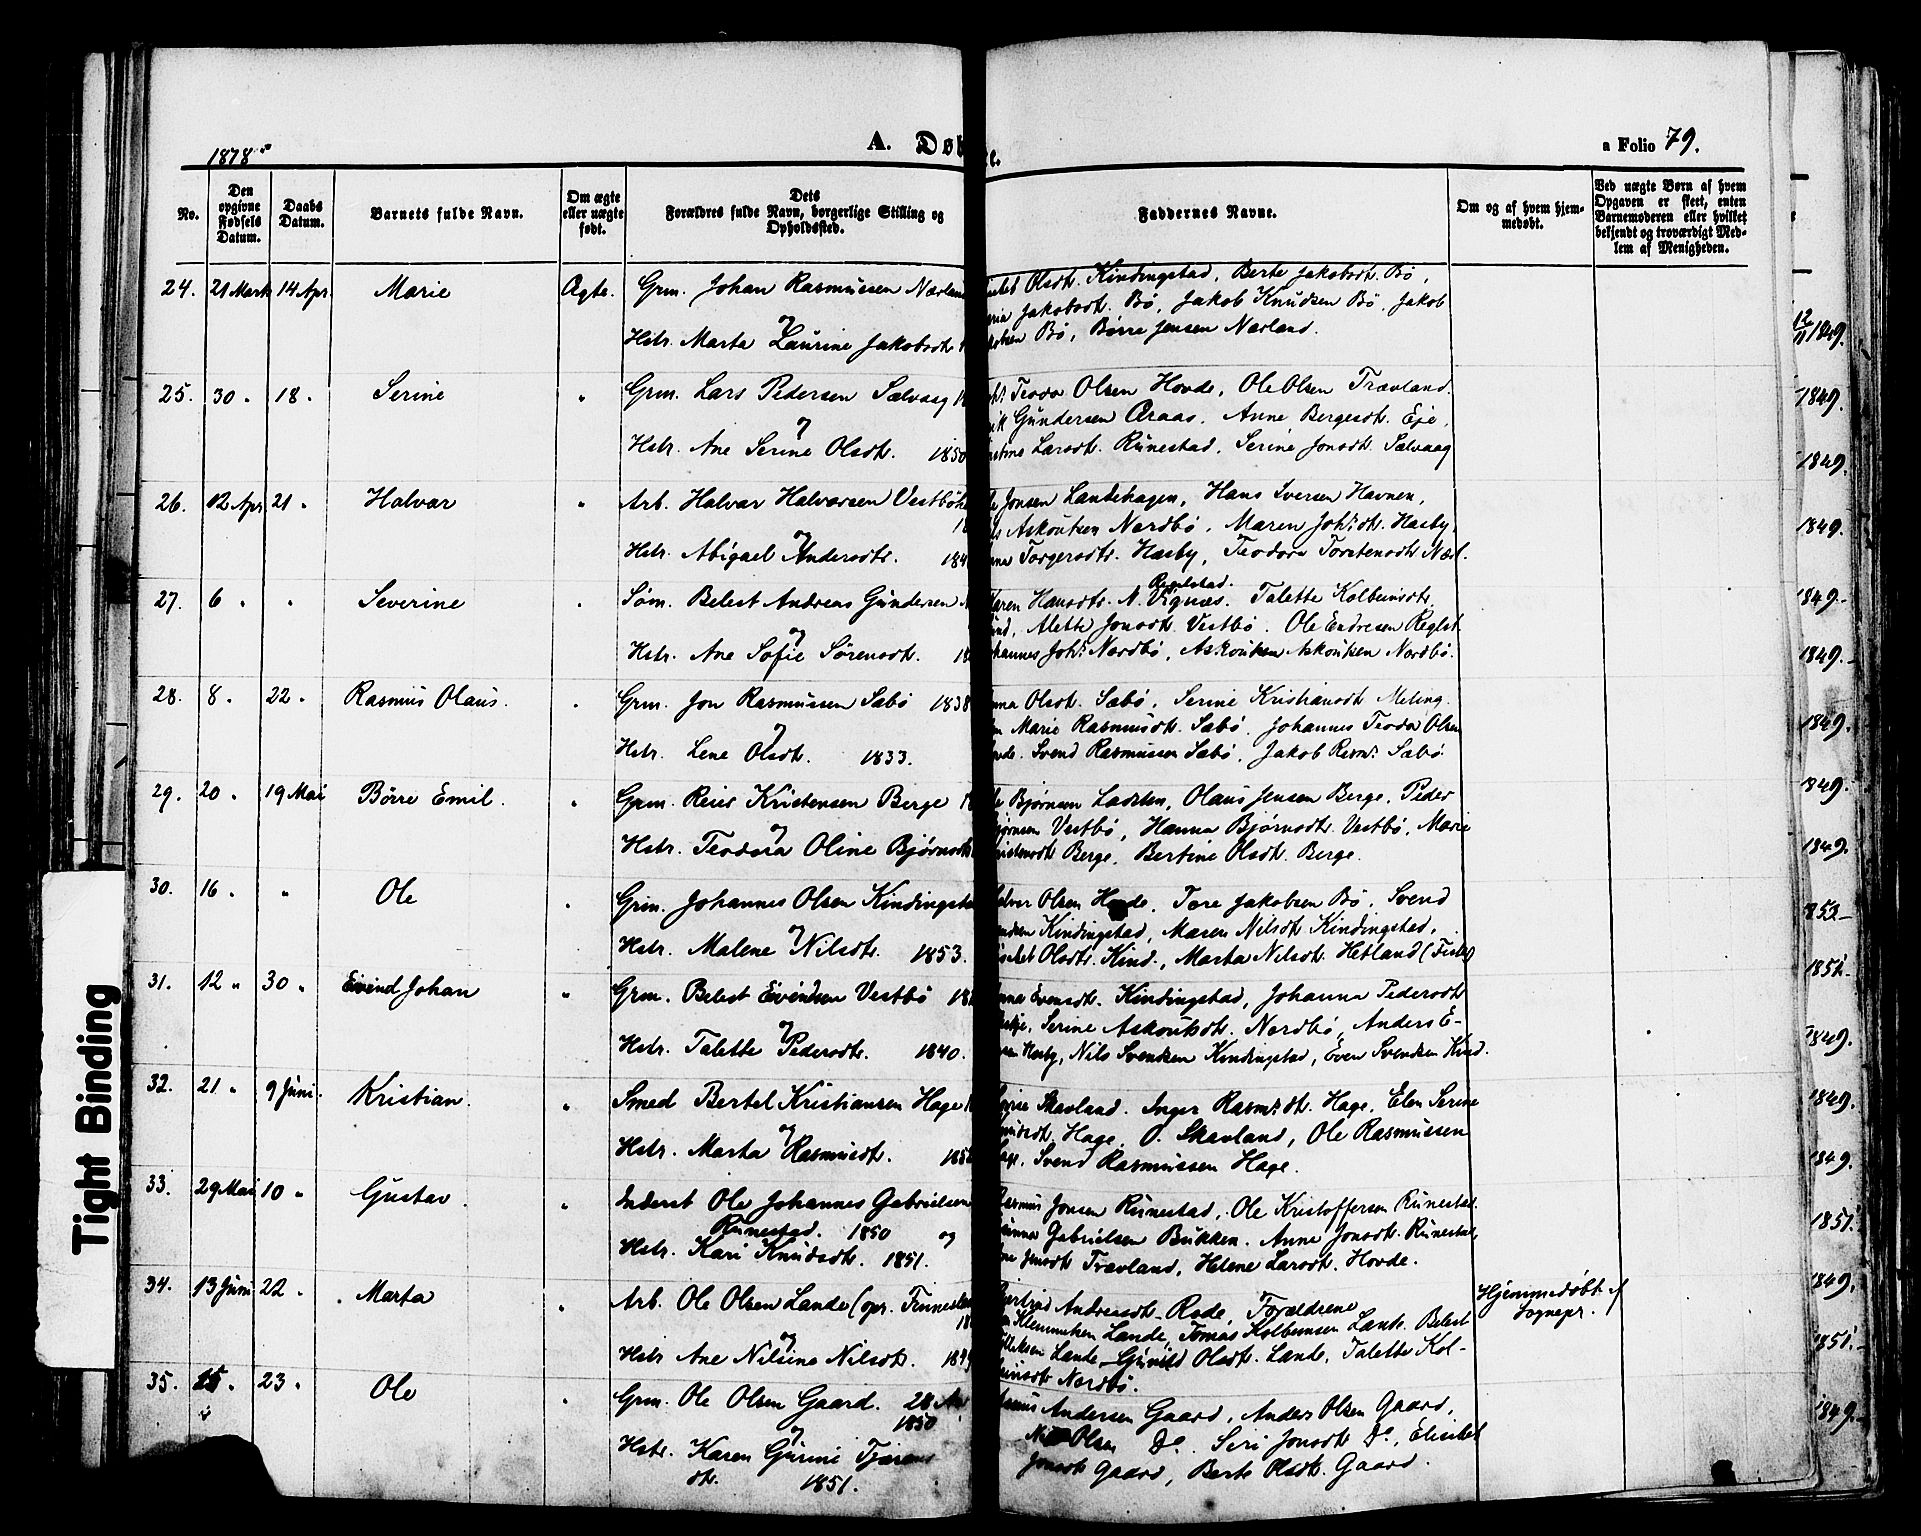 1878
A. Døb
e.
a Folio 79.
No.
Den opgivne Fødsels Datum.
Daabs Datum.
Barnets fulde Navn.
Om ægte eller uægte født.
Dets Forældres fulde Navn, borgerlige Stilling og Opholdssted.
Faddernes Navne.
Om og af hvem hjemmedøbt.
Ved uægte Børn af hvem Opgaven er skeet, enten Barnemoderen eller hvilket bekjendt og troværdigt Medlem af Menigheden.
24. 21 Mart 14 Apr. Marie Ægte. Grm. Johan Rasmussen Nærland
Hstr. Marta Laurine Jakobsdtr.
Olsdt. Kindingstad, Berte Jakobsdt. Bö,
Jakobsdt. Bö, Jakob Knudsen Bö, Jakob
Bö, Börre Jensen Nærland.
25. 30 " 18 " Serine " Grm. Lars Pedersen Sælvaag
og
Hstr. Ane Serine Olsdtr. 1850
Teodor Olsen Hovde, Ole Olsen Trævland
Gundersen Araas, Anne Bergesdt. Eje,
Larsdt. Runestad, Serine Jonsdt. Sælvaag
26. 12 Apr 21 " Halvar " Arb. Halvar Halvarsen Vestböh
og
Hstr. Abigael Andersdtr. 184
Jonsen Landehagen, Hans Iversen Havnen,
Askoutsen Nordbö, Maren Joh.dt. Hasby
Torgersdtr. Hasby, Teodora Torstensdt. Nærl.
27. 6 " " Severine " Söm. Belest Andreas Gundersen
og
Hstr. Ane Sofie Sörensdt.
Regelstad.
Hansdtr. N. Vignæs. Talette Kolbeinsdtr.
Alette Jonsdt. Vestbö. Ole Endresen Reglst.
Joh. Nordbö, Askoutsen Nordbö.
28. 8 " 22 " Rasmus Olaus. " Grm. Jon Rasmussen Sæbö 1838
og
Hstr. Lene Olsdt. 1833.
Olsdt. Sæbö, Serine Kristiansdt Meling.
Marie Rasmusdt. Sæbö. Johannes Teodor Olsen
Svend Rasmussen Sæbö, Jakob Rasm. Sæbö
29. 20 " 19 Mai Börre Emil. " Grm. Reier Kristensen Berge
og
Hstr. Teodora Oline Björnsdtr
Björnsen Ladsten, Olaus Jensen Berge, Peder
Vestbö, Hanna Björnsdtr. Vestbö, Marie
Berge, Bertine Olsdt. Berge.
30. 16 " " Ole " Grm. Johannes Olsen Kindingstad
og
Hstr. Malene Nilsdtr. 1853.
Olsen Hovde, Tore Jakobsen Bö, Svend
Kindingstad, Maren Nilsdt. Kindingstad,
Olsdtr. Kind., Marta Nilsdt. Hetland (Fister)
31. 12 " 30 " Eivind Johan " Grm. Belest Eivindsen Vestbö
og
Hstr. Talette Pedersdtr. 1840.
Evensdt. Kindingstad, Johanna Pedersdt
Serine Askoutsdt. Nordbö, Anders E-
Hasby, Nils Svendsen Kindingstad, Even Svendsen Kind.
32. 21 " 9 Juni. Kristian " Smed Bertel Kristiansen Hage
og
Hstr. Marta Rasmusdt. 185
Skavland. Inger Rasm.dt. Hage, Elen Serine
Hage, O. Skavland, Ole Rasmussen
Svend Rasmussen Hage.
33. 29 Mai 10 " Gustav " Inderst Ole Johannes Gabrielsen
Runestad. 1850 og
Hstr. Kari Knudsdt. 1851.
Rasmus Jonsen Runestad, Ole Kristoffersen Runestad
Gabrielsen Bukken. Anne Jonsdt. Runestad,
Trævland, Helene Larsdt. Hovde.
34. 13 Juni 22 " Marta " Arb. Ole Olsen Lande (opr. Finnesten
og
Hstr Ane Nilsine Nilsdt. 184
Andreasdt. Rade, Forældrene
Klemmetsen Lande, Tomas Kolbeinsen Lande, Belest
Lande, Gunild Olsdt. Lande, Talette Kol-
Nordbö.
Hjemmedøbt af
Sognepr.
35. 15 " 23 " Ole " Grm. Ole Olsen Gaard. 28 Aar
1850
og
Hstr. Karen Gurine Tjærans
dtr. 1851.
Andersen Gaard, Anders Olsen Gaard,
Olsen Do. Siri Jonsdt Do, Elisabet
Jonsdt Gaard, Berte Olsdt. Gaard.
1849.
1849.
1849.
1849.
1849.
1849.
1849.
1849.
1849.
1851.
1849.
1849.
1849.
1851.
1849.
1851.
1849.
Tight Binding